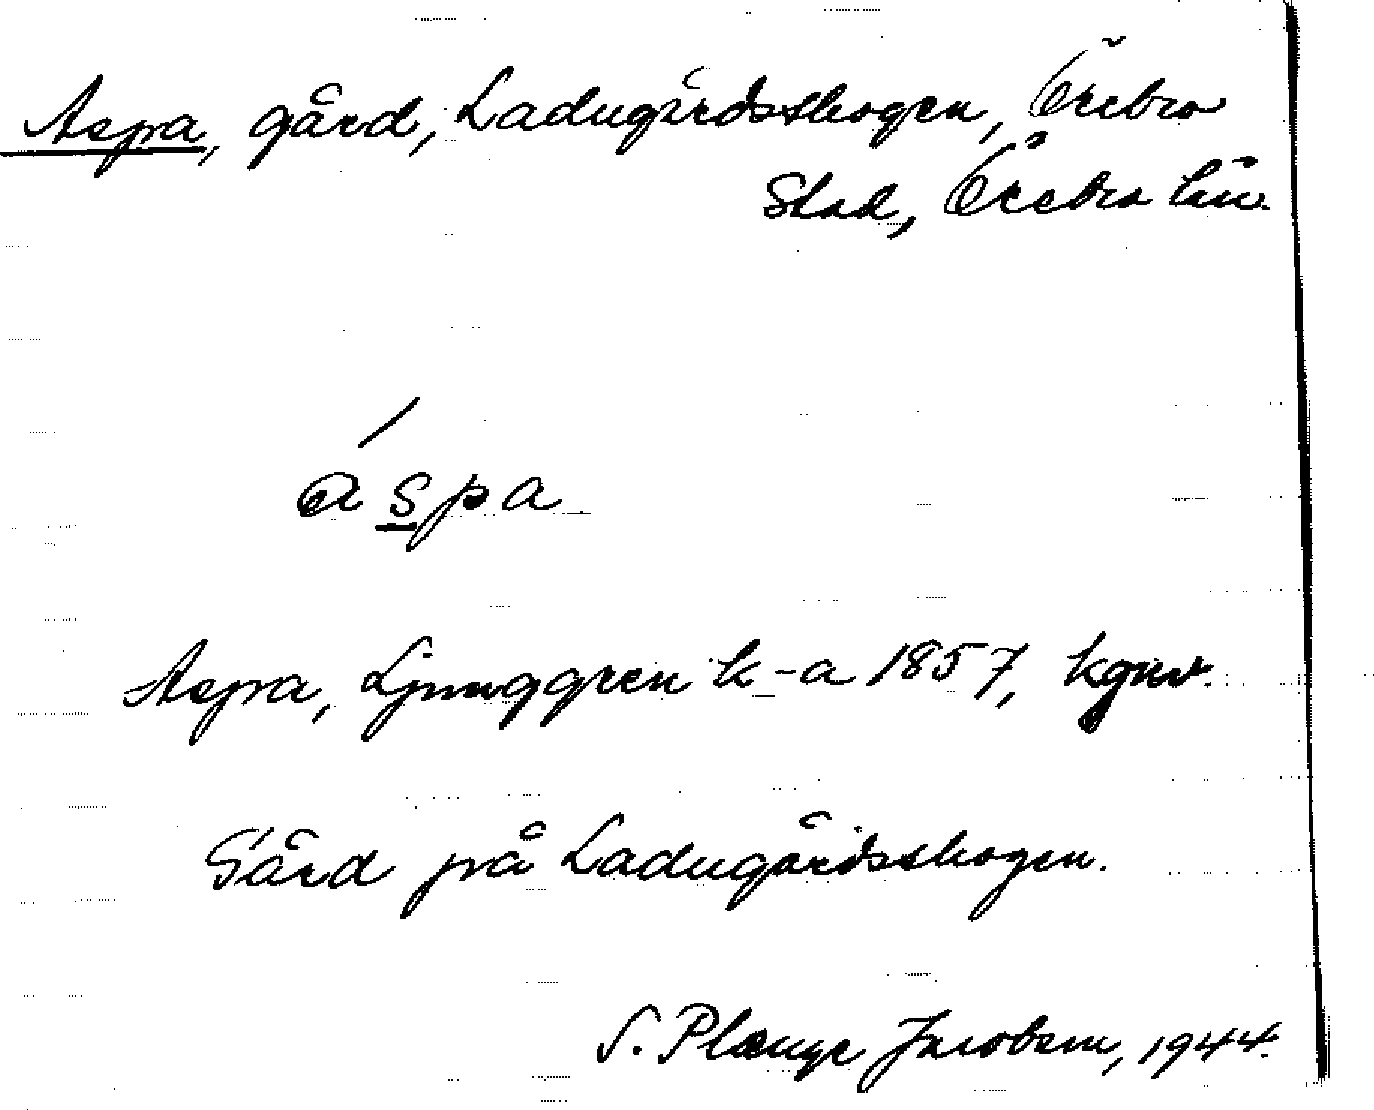 Aspa, gård, Ladugårdsskogen, Örebro
Stad, Örebro län.
áspa
Aspa, Ljunggren k-a 1857,
Gård på Ladugårdsskogen.
S. Plænge Jacobsen, 1944.